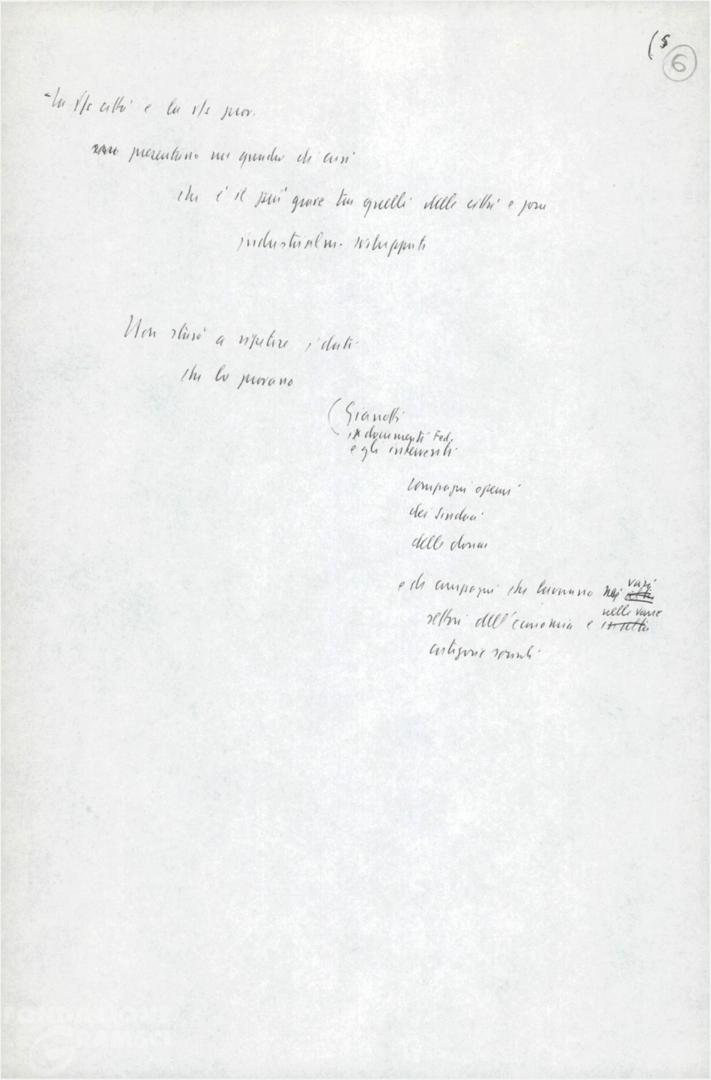 (5
6
- La v/s città e la v/s prov.
presentano un quadro di crisi
che è il più grave tra quelli delle città e prov
industrialm. sviluppati
Non starò a ripetere i dati
che lo provano
(Gianotti
documenti Fed.
e gli interventi
compagni operai
dei sindaci
delle donne
e di compagni che lavorano nei vari
settori dell'economia e nelle varie
categorie sociali
FONDAZIONE
GRAMSCI